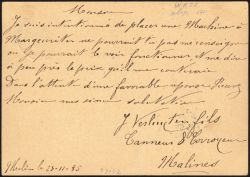 Monsieur
Je suis intentionné de placer une Machine a
Margueritte ne pourrait tu pas me renseigner
ou ça pourrait le voir fonctionner et me dire
à peu près le prix qu'elle
Dans l'attente d'une favorable réponse
Monsieur mes sincères salutations
J Verlinden fils
Tanneur & Corroyeur
Malines
Malines le 23-11-95